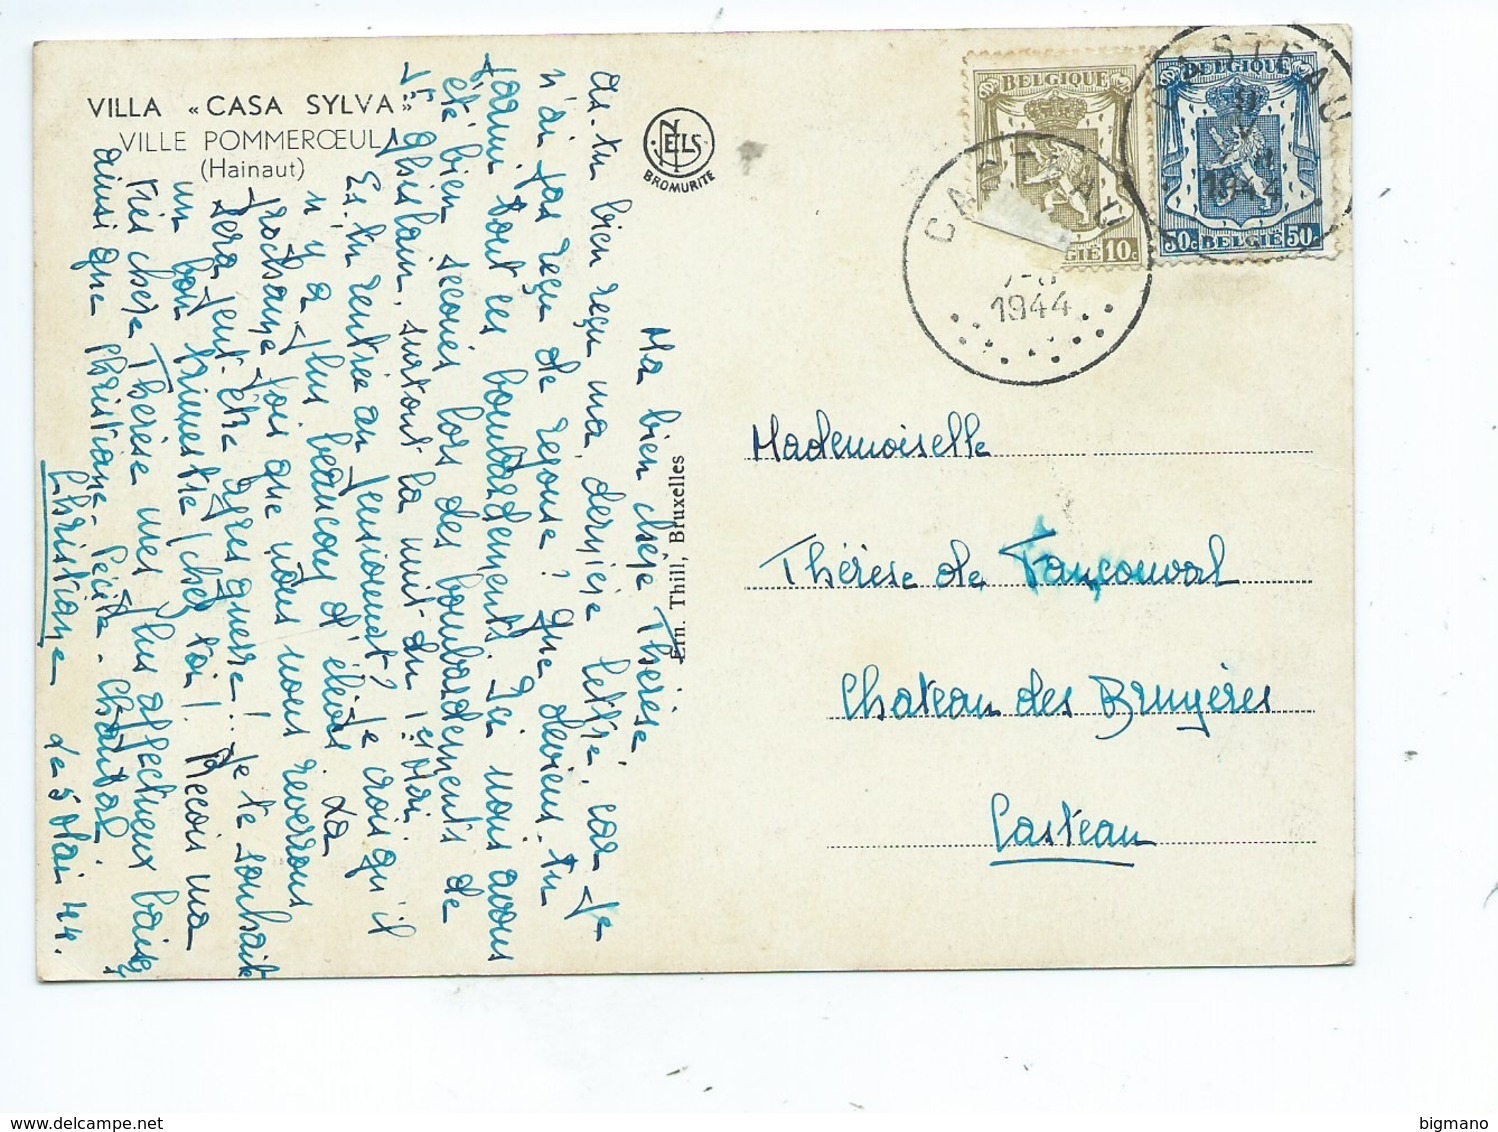 VILLA «CASA SYLVA»
VILLE POMMERŒUL
(Hainaut)
NELS
BROMURITE
Ern. Thill, Bruxelles
BELGIQUE
10c
BELGIQUE
50c BELGIË 50c
CASTEAU
1944
CASTEAU
1944
Mademoiselle
Thérèse de Fauconval
Chateau des Bruyères
Casteau
Ma bien chère Thérèse
As-tu bien reçu ma dernière lettre, car je
n'ai pas reçu de reponse? Que deviens-tu
parmi tout ces bombardements. Ici nous avons
été bien secoués lors des bombardements de
St Ghislain, surtout la nuit du 1er Mai.
Es-tu rentrée au pensionnat? Je crois qu'il
n'y a plus beaucoup d'élèves. La
prochaine fois que nous nous reverrons
sera peut-être après guerre! Je te souhaite
un bon trimestre (chez toi)! Reçois ma
très chère Thérèse mes plus affectueux baisers
ainsi que Christiane-Cécile-Chantal.
Christiane le 5 Mai 44.
bigmano